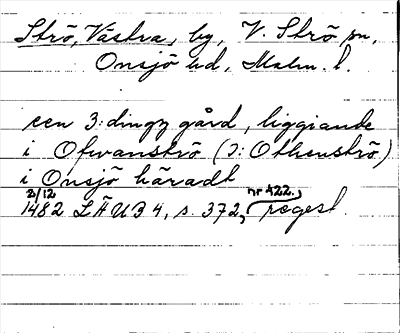 Strö, Västra, by, V. Strö sn,
Onsjö hd, Malm. l.
een 3:dingz gård, liggiande
i Ofwanströ (ɔ: Othenströ)
i Onsjö häradt
2/12
1482 LÄUB 4, s. 372, nr 422., regest.